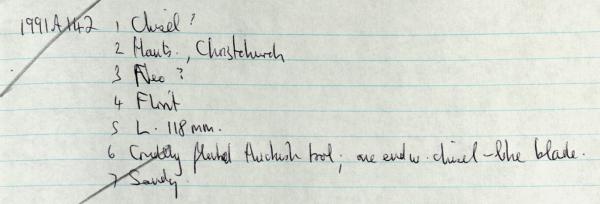 1991A142 1 Chisel?
2 Hants., Christchurch
3 Neo?
4 Flint
5 L. 118mm.
6 Crudely flaked thickish tool; one end w. chisel-like blade.
7 Sandy.